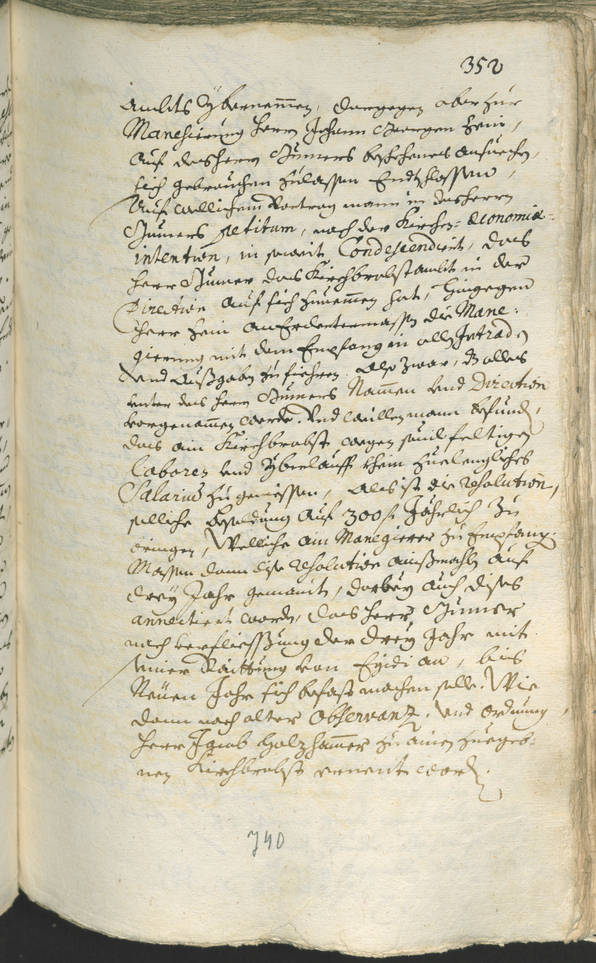 352
Ambts Ybernemmen, dargegen aber zur
Manegierung herrn Johann Georgen Hein,
auf des herrn Simers beschehenes ansuechen,
sich gebrauchen zulassen Entschlossen,
Auf wellichem Vortrag mann in des herrn
Simers petitum, nach der Kirchen-Œconomia-
intention, in soweit Condescendiert, das
herr Simer das Kirchbrobstambt in der
Direction auf sich zunemen hat, hingegen
herr Hein anErdeitermassen die Mane-
gierung mit dem Empfang in all Intraden
und Außgaben zu fiehren. also zwar, dz alles
unter des herrn Simers Nammen und Direction
vorgenomen werde. Und weillen mann befunden,
das ain Kirchbrobst wegen seines feltigen
Labores und Yberlauff khein zuelengliches
Salarium zu geniessen, als ist die resolution,
selliche besoldung auf 300 f. Jährlich zu
bringen, Welliche ain Manegierer zu Empfang-
Massen dann dise resolution ainßmahls auf
drey Jahr gemaint, darbey auch dises
annectiert worden, das herr Simer
nach verfliessung der drey Jahr mit
seiner Raittung von Egidi an, bis
Neuen Jahr sich befast machen solle. Wie
dann nach alter Observanz, und Ordnung
herr Jacob Holzhammer zu ainen zuegeb-
nen Kirchbrobst ernent worden.
740